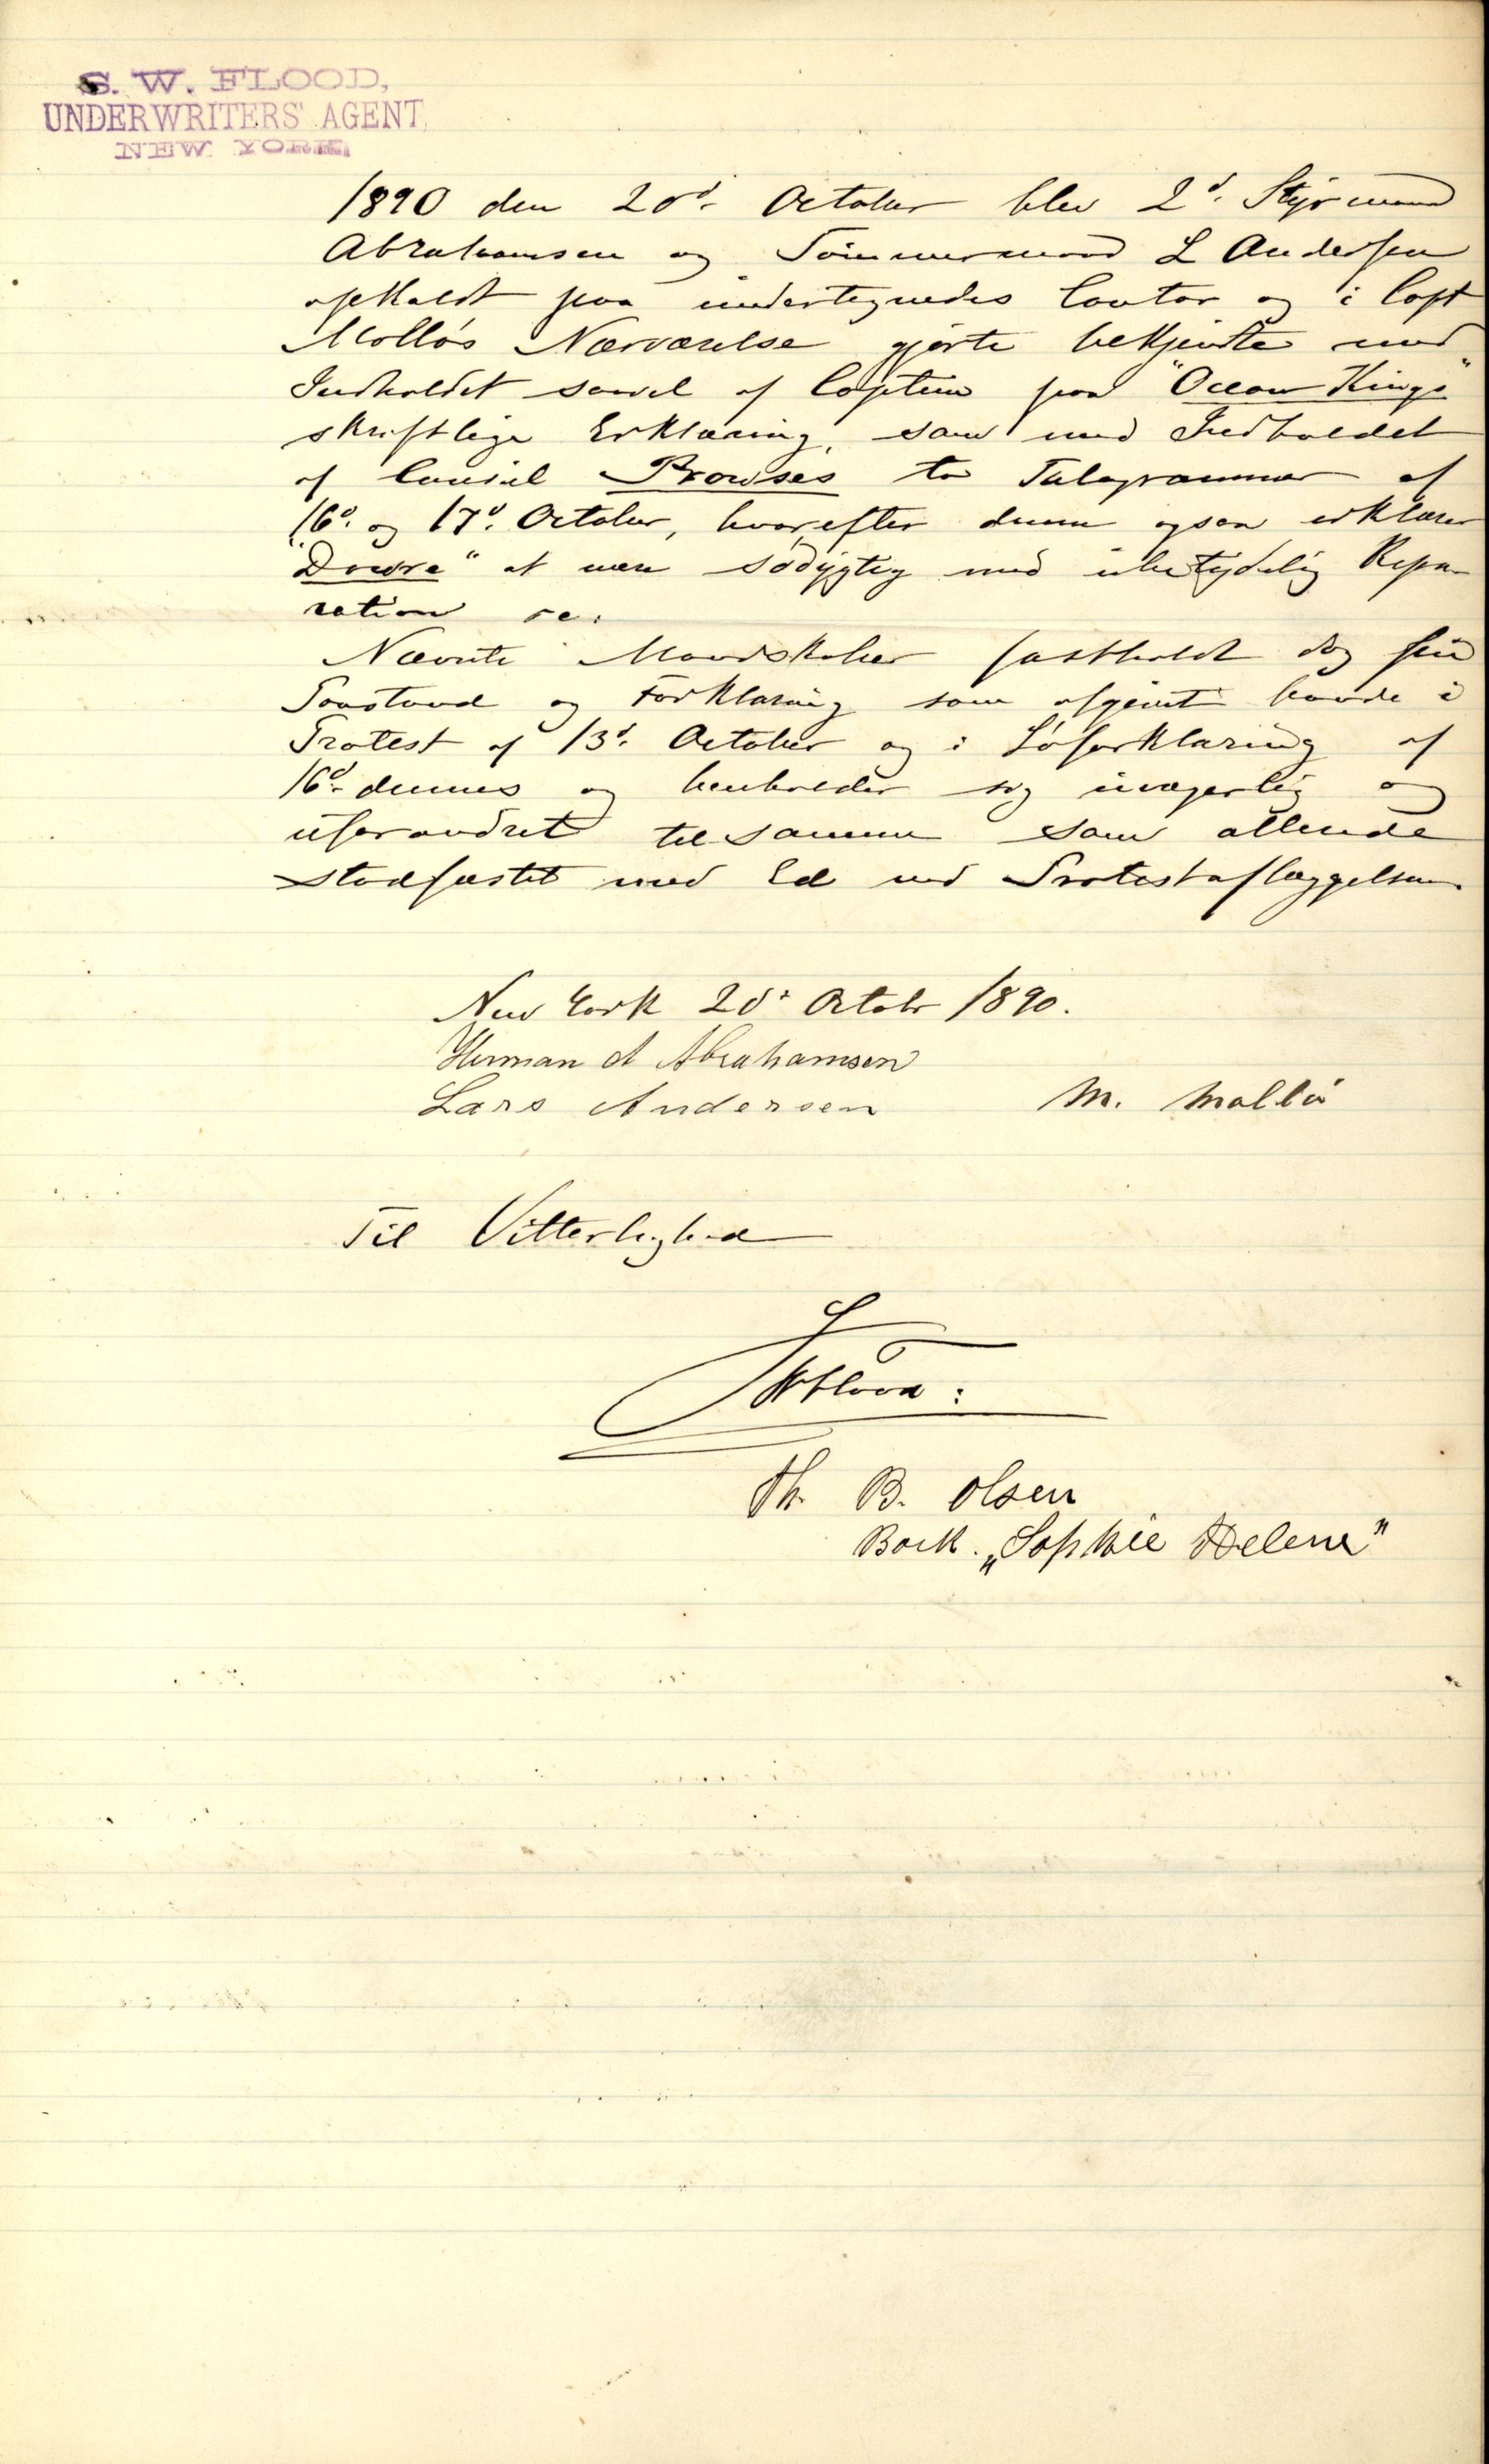 S. W. FLOOD,
UNDERWRITERS' AGENT,
NEW YORK
1890 den 20d. October blev 2d. Styrmand
Abrahamsen og Tömmermand L Andersen
opkaldt paa undertegnedes Contor og i Capt
Mollös Nærværelse gjorte bekjendte med
Indholdet savel af Captein paa "Ocean Kings"
skriftlige Erklæring, som med Indholdet
af Consul Prowses to Telegrammer af
16d. og 17d. October, hvorefter denne ogsaa erklærer
"Dovre" at være södygtig med ubetydelig Repa-
ration
Nævnte Mandskaber fastholdt dog sin
Paastand og Forklaring som afgivet havde i
Protest af 13d. October og i Söforklaring af
16d. dennes og henholder sig uvægerlig og
uforandret til samme som allerede
stadfæstet med Ed ved Protestaflæggelsen.
New York 20d October 1890.
Herman A Abrahamsen
Lars Andersen M. Mollö
Til Vitterlighed
SWFlood:
Th. B. Olsen
Bark. „Sophie Helene"